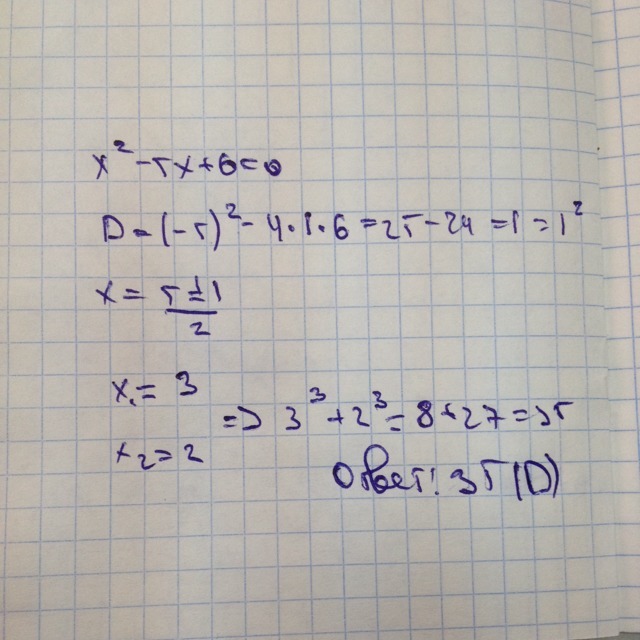 x² - 5x + 6 = 0
D = (-5)² - 4·1·6 = 25 - 24 = 1 = 1²
x = (5 ± 1)/2
x₁ = 3
x₂ = 2
=> 3³ + 2³ = 8 + 27 = 35
Ответ: 35 (D)